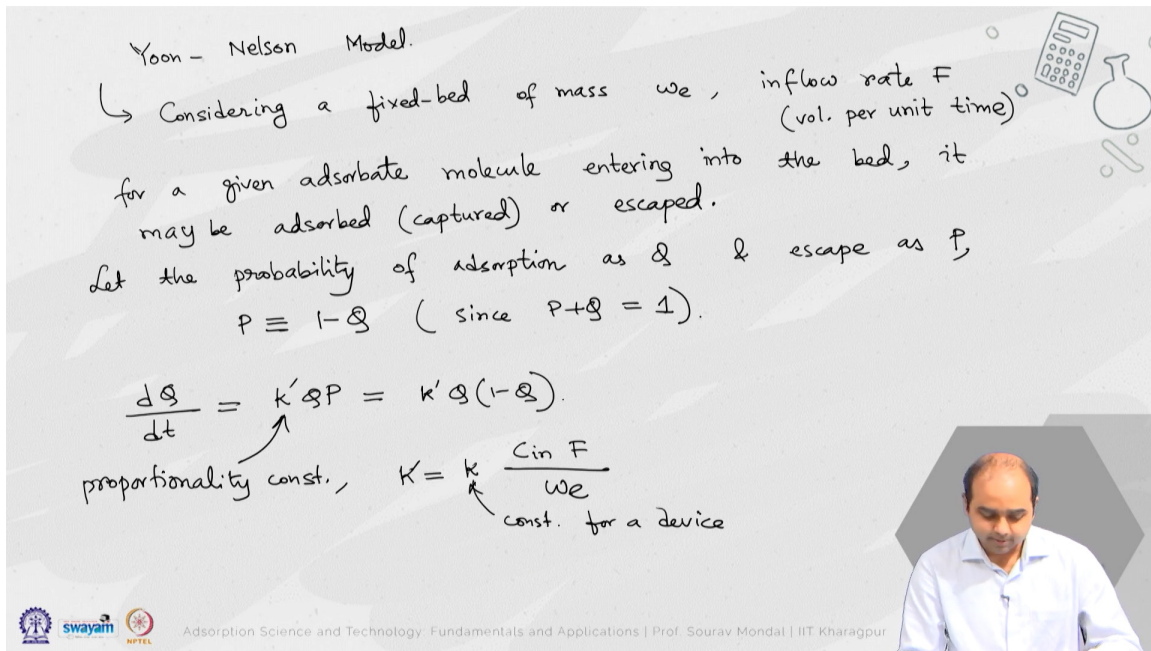 Yoon - Nelson Model.
↳ Considering a fixed-bed of mass We, inflow rate F
(vol. per unit time)
for a given adsorbate molecule entering into the bed, it
may be adsorbed (captured) or escaped.
Let the probability of adsorption as Q & escape as P,
P ≡ 1-Q ( since P+Q = 1).
dQ/dt = k'QP = k'Q(1-Q).
proportionality const., K = k Cin F / We
const. for a device
swayam
NPTEL
Adsorption Science and Technology: Fundamentals and Applications | Prof. Sourav Mondal | IIT Kharagpur